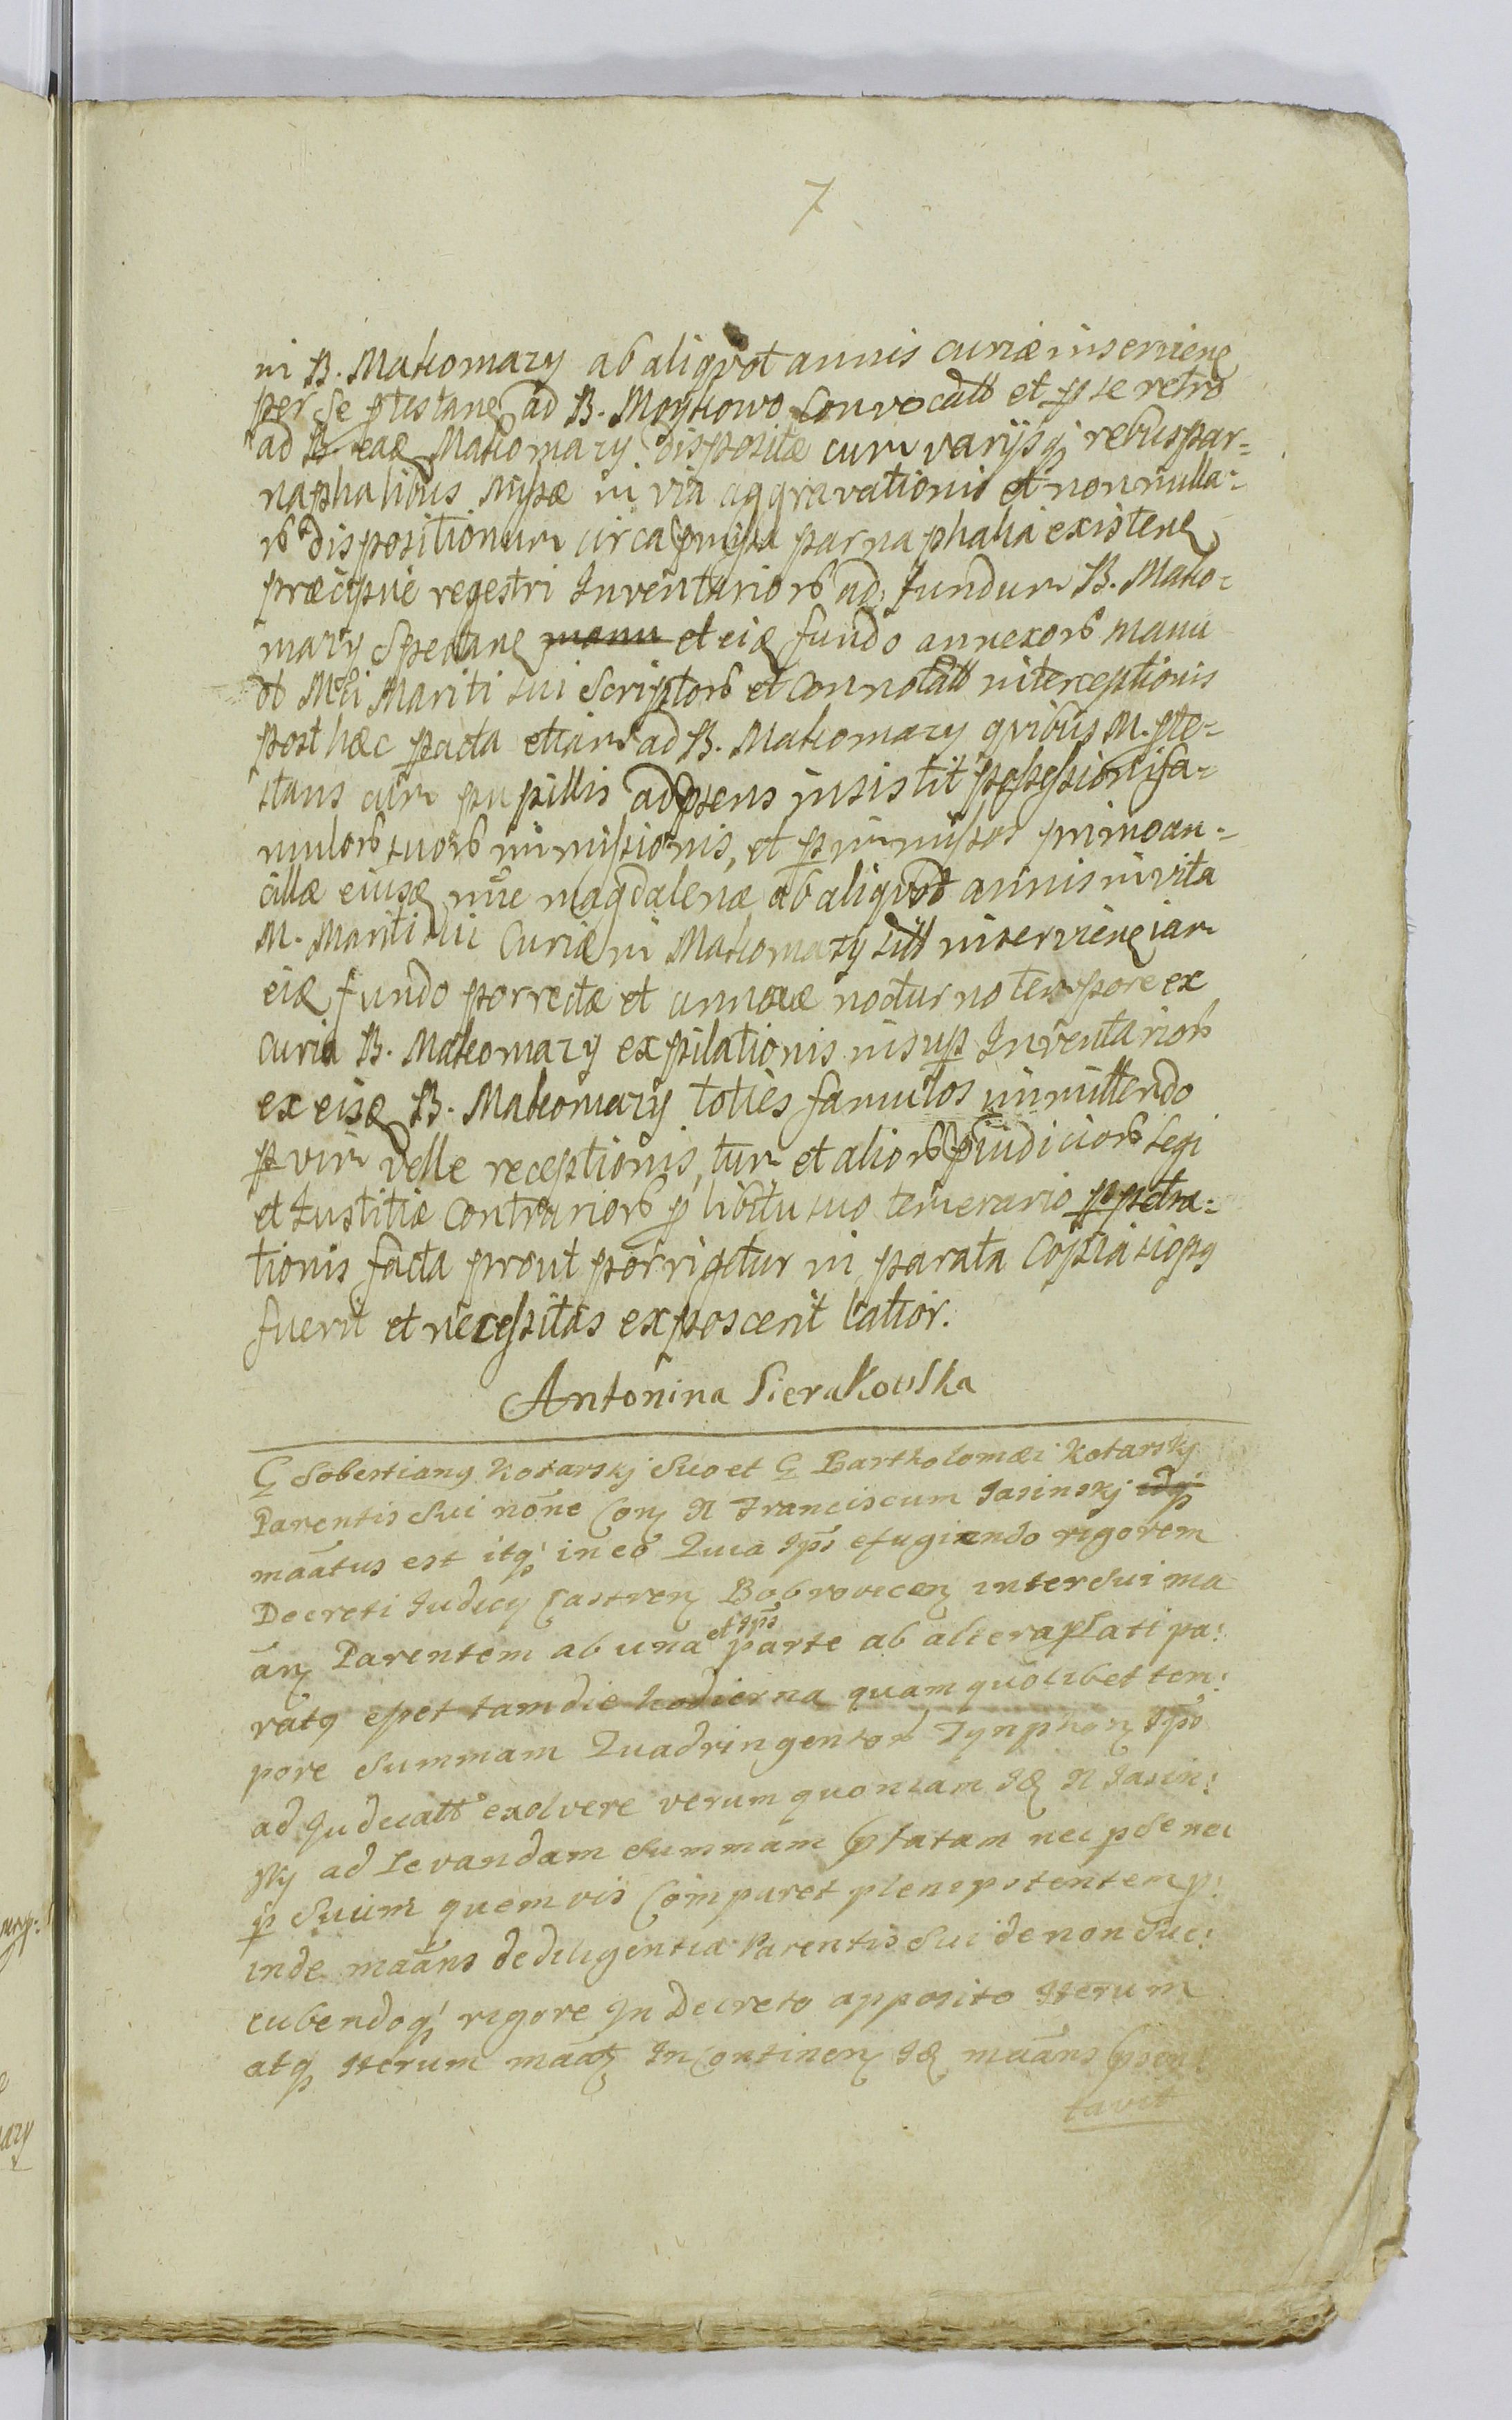 7
in B. Makomazy ab aliqvot annis curiæ inserviene
per se ptestane ad B. Moykowo Convocatt et p se retro
ad B. eaæ Makomazy dispositæ cum varijsq rebus par=
naphalibus mysæ in via aggravationis et nonnulla=
rb dispositionum circa pmisa parnaphalia existene
præcipue regestri Inventariorb ad fundum B. Mako=
mazy Spectane manu et eiæ fundo annexorb manu
ol Mfci Mariti sui Scriptorb et Connotatt interceptionis
post hæc facta etiam ad B. Makomazy qvibus M. pte=
stans cum pupillis adpsens insistit possessioni fa=
mulorb suorb immissionis, et p immissos primo an=
cillæ eiusæ nne magdalenæ ab aliqvot annis in vita
M. Mariti sui Curiæ in Makomazy sitt inserviene iam
eiæ fundo porrectæ et annexæ nocturno tempore ex
curia B. Makomazy expilationis insup Inventariorb
ex eisæ B. Makomazy toties famulos immittendo
p vim velle receptionis, tum et aliorb piudiciorb legi
et Iustitiæ Contrariorb p libitu suo temerario ppetra=
tionis facta prout porrigetur in parata Copia siops
fuerit et necessitas exposcerit latior.
Antonina Sierakowska
G Sobestiang Kotarskj Suo et G Bartholomæi Kotarskj
Parentis Sui nõne Corz N Franciscum Jasinskj idqs
maãtus est itq in eo Quia Ips efugiendo rigorem
Decreti Judicy Castrenz Bobrovicenz inter Sui ma
ãnz Parentem ab una et Ips parte ab altera plati pa:
ratq esset tam die hodierna quam quolibet tem:
pore Summam Quadringentor Tynphorz Ipo
ad Judicatt exolvere verum quoniam Iæ N Jasin:
sky ad Levandam Summam platam nec p se nec
p Suum quemvis Comparet plenipotentem p:
inde maãns de diligentia Parentis Sui de non Suc:
cubendoq rigore In Decreto apposito Iterum
atq Iterum maãtz In Continenz Iæ maãns psen
tavit